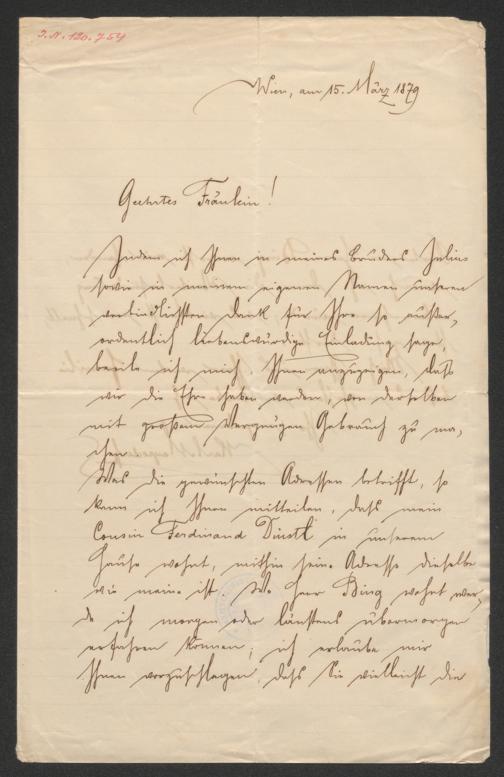 J. N. 120.754
Wien, am 15. März 1879
Geehrtes Fräulein!
Indem ich Ihnen in meines Bruders Julius
sowie in meinem eigenen Namen unseren
verbindlichsten Dank für Ihre so außer-
ordentlich liebenswürdige Einladung sage,
beeile ich mich Ihnen anzuzeigen, daß
wir die Ehre haben werden, von derselben
mit großem Vergnügen Gebrauch zu ma-
chen.
Was die gewünschten Adressen betrifft, so
kann ich Ihnen mitteilen, daß mein
Cousin Ferdinand Dinstl in unserem
Hause wohnt, mithin seine Adresse dieselbe
wie meine ist. Wo Herr Bing wohnt wer-
de ich morgen oder längstens übermorgen
erfahren können; ich erlaube mir
Ihnen vorzuschlagen, daß Sie vielleicht die